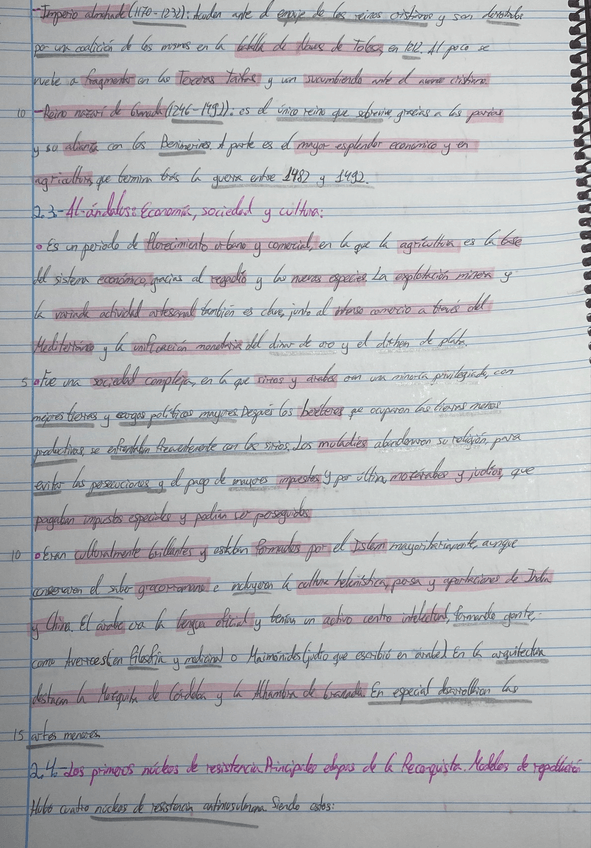 -Imperio almohade (1170-1232): Acuden ante el empuje de los reinos cristianos y son derrotados
por una coalición de los mismos en la batalla de Navas de Tolosa, en 1212. Al poco se
vuelve a fragmentar en las Terceras Taifas y van sucumbiendo ante el avance cristiano.
10 -Reino nazarí de Granada (1246-1492): es el único reino que sobrevive gracias a las parias
y su alianza con los Benimerines. A parte es el mayor esplendor económico y en
agricultura, que termina tras la guerra entre 1482 y 1492.
2.3-Al-ándalus: Economía, sociedad y cultura:
• Es un periodo de florecimiento urbano y comercial, en la que la agricultura es la base
del sistema económico, gracias al regadío y las nuevas especies. La explotación minera y
la variada actividad artesanal también es clave, junto al intenso comercio a través del
Mediterráneo y la unificación monetaria del dinar de oro y el dirhem de plata.
5 • Fue una sociedad compleja, en la que sirios y árabes eran una minoría privilegiada, con
mejores tierras y cargos políticos mayores. Después los bereberes que ocuparon las tierras menos
productivas, se enfrentan frecuentemente con los sirios. Los muladíes abandonaron su religión, para
evitar las persecuciones y el pago de mayores impuestos. Y por último, mozárabes y judíos, que
pagaban impuestos especiales y podían ser perseguidos.
10 • Eran culturalmente brillantes y estaban formados por el Islam mayoritariamente, aunque
conservaron el saber grecorromano e incluyeron la cultura helenística, persa y aportaciones de India
y China. El árabe era la lengua oficial y tenían un activo centro intelectual, formando gente,
como Averroes (en filosofía y medicina) o Maimónides (judío que escribió en árabe). En la arquitectura
destacan la Mezquita de Córdoba y la Alhambra de Granada. En especial desarrollaron las
15 artes menores.
2.4-Los primeros núcleos de resistencia. Principales etapas de la Reconquista. Modelos de repoblación
Hubo cuatro núcleos de resistencia antimusulmana. Siendo estos: